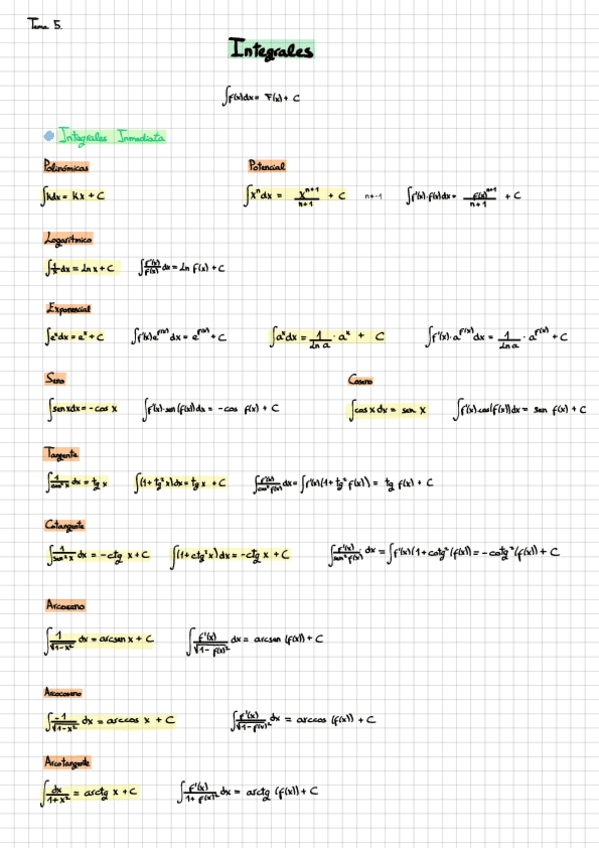 Tema 5.
Integrales
∫f(x)dx = F(x) + C
Integrales Inmediata
Polinómicas Potencial
∫kdx = kx + C ∫xⁿdx = xⁿ⁺¹/n+1 + C n≠-1 ∫f'(x)·f(x)dx = f(x)ⁿ⁺¹/n+1 + C
Logarítmico
∫1/x dx = Ln x + C ∫f'(x)/f(x) dx = Ln f(x) + C
Exponencial
∫eˣdx = eˣ + C ∫f'(x)e^f(x) dx = e^f(x) + C ∫aˣdx = 1/Ln a · aˣ + C ∫f'(x)·a^f(x) dx = 1/Ln a · a^f(x) + C
Seno Coseno
∫sen xdx = -cos x ∫f'(x)·sen(f(x))dx = -cos f(x) + C ∫cos x dx = sen x ∫f'(x)·cos(f(x))dx = sen f(x) + C
Tangente
∫1/cos²x dx = tg x ∫(1+tg²x)dx = tg x + C ∫f'(x)/cos²f(x) dx = ∫f'(x)(1+tg²f(x)) = tg f(x) + C
Cotangente
∫1/sen²x dx = -ctg x + C ∫(1+ctg²x)dx = -ctg x + C ∫f'(x)/sen²f(x) · dx = ∫f'(x)(1+cotg²(f(x)) = -cotg²(f(x)) + C
Arcoseno
∫1/√1-x² dx = arcsen x + C ∫f'(x)/√1-f(x)² dx = arcsen (f(x)) + C
Arcocoseno
∫-1/√1-x² dx = arccos x + C ∫f'(x)/√1-f(x)² dx = arccos (f(x)) + C
Arcotangente
∫dx/1+x² = arctg x + C ∫f'(x)/1+f(x)² dx = arctg (f(x)) + C